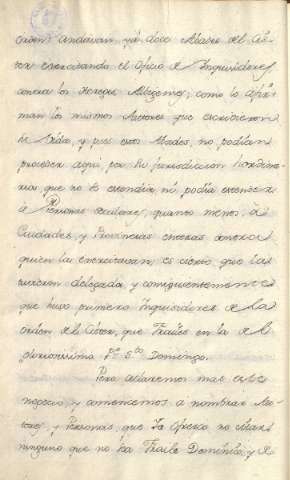 orden andavan, yá doce Abades del Cis-
ter exercitando el Oficio de Inquisidores,
contra los Hereges Albigenses, como lo afir-
man los mismos Autores que escrivieron
su Vida, y pues estos Abades, no podian
proceder aqui, por su jurisdiccion hordina-
ria que no se estendia ni podia estenderse
à Personas seculares, quanto menos à
Ciudades, y Provincias enteras donde
quien la exercitavan, es cierto que la
tuvieron delegada, y consiguientemente
que huvo primero Inquisidores de la
orden del Cister, que Frailes en la de el
gloriosissimo P.e S.to Domingo.
Pero aclaremos mas este
negocio, y comencemos a nombrar Au-
tores, y Personas, que Yo ofrezco no citaré
ninguno que no sea Fraile Dominico, y de